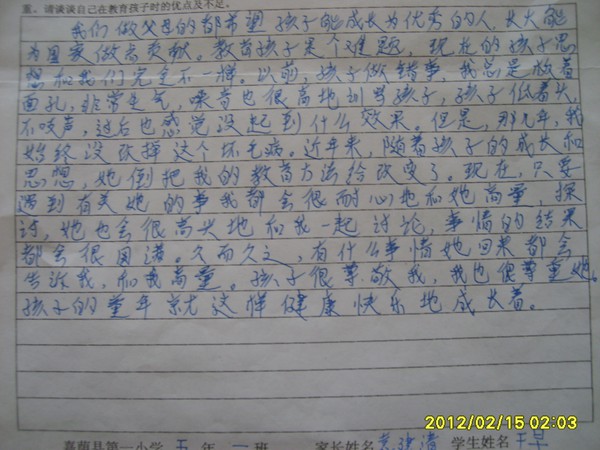 重、请谈谈自己在教育孩子时的优点及不足。
我们做父母的都希望孩子能成长为优秀的人,长大能
为国家做点贡献。教育孩子是个难题,现在的孩子思
想和我们完全不一样。以前,孩子做错事,我总是板着
面孔,非常生气,嗓音也很高地训斥孩子,孩子低着头,
不吱声,过后也感觉没起到什么效果。但是,那几年,我
始终没改掉这个坏毛病。近年来,随着孩子的成长和
思想,她倒把我的教育方法给改变了。现在,只要
遇到有关她的事我都会很耐心地和她商量,探
讨,她也会很高兴地和我一起讨论,事情的结果
都会很圆满。久而久之,有什么事情她回来都会
告诉我,和我商量。孩子很尊敬我,我也很尊重她。
孩子的童年就这样健康快乐地成长着。
嘉荫县第一小学 五 年 一 班 家长姓名 学生姓名 王早
2012/02/15 02:03